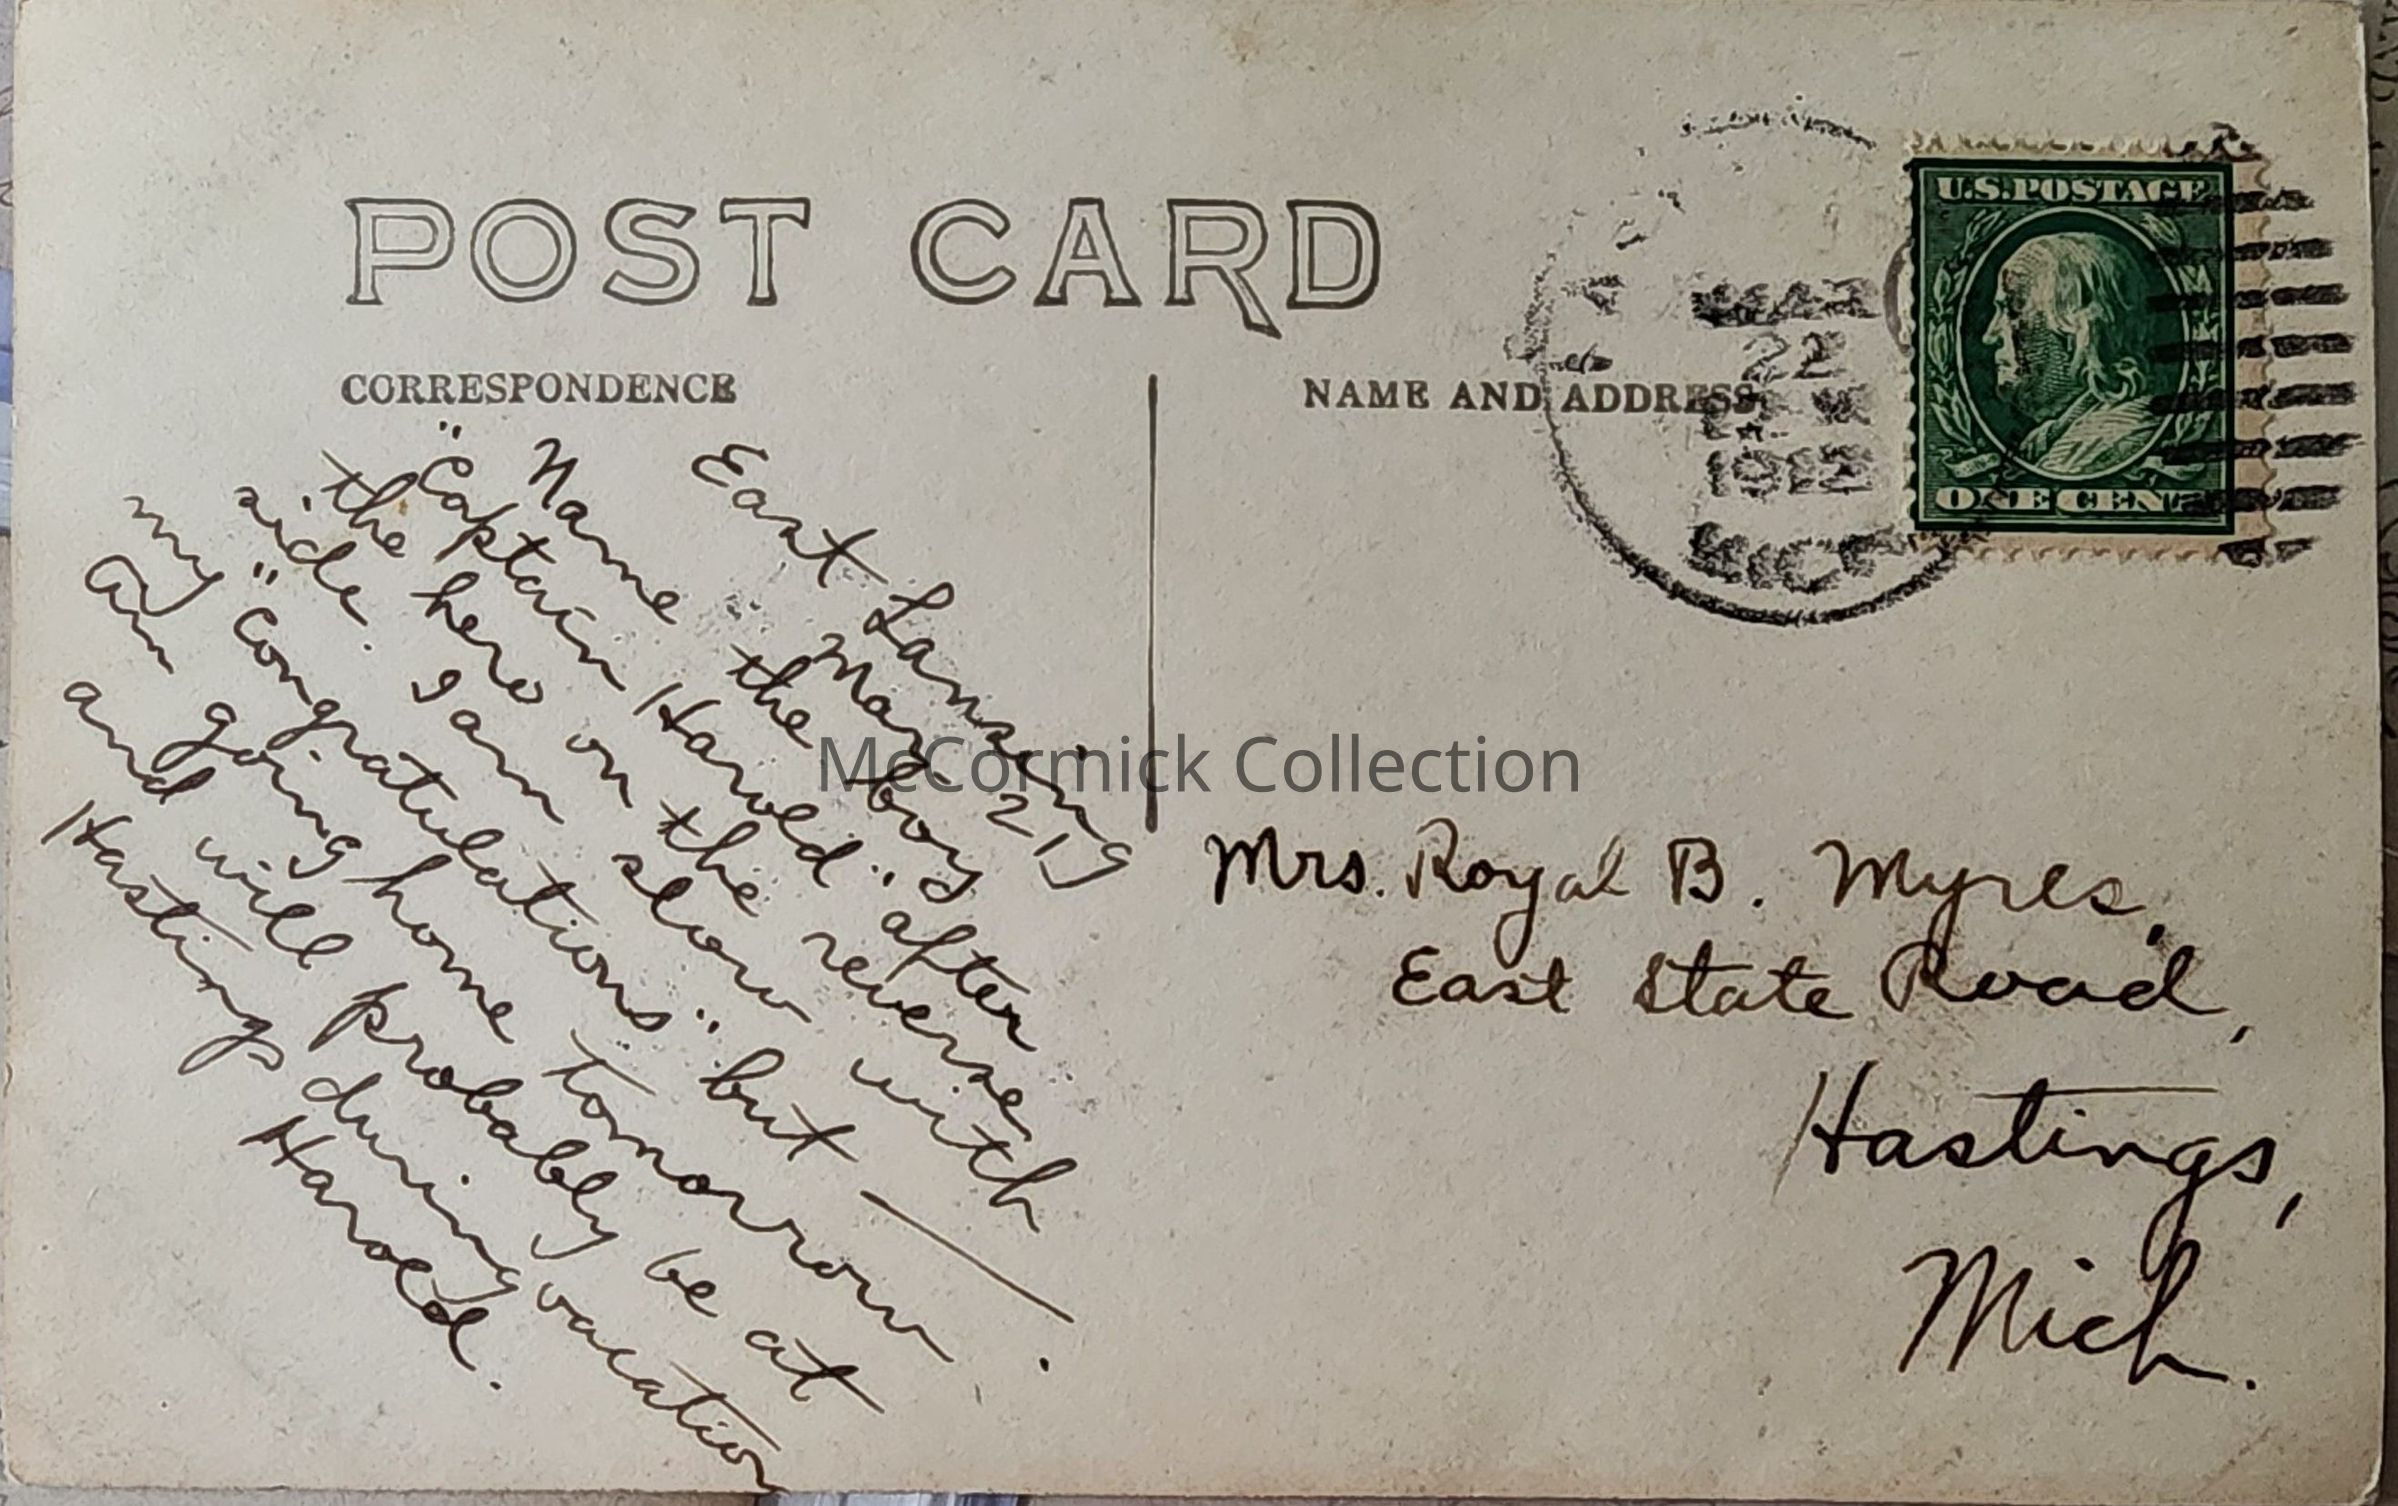 POST CARD
CORRESPONDENCE
NAME AND ADDRESS
U.S. POSTAGE
ONE CENT
MAR
22
1912
MICH
East Lansing
Mar. 21
Name the boy
"Captain Harold" after
the hero on the reverse
side. I am slow with
my "Congratulations" but —.
Am going home tomorrow
and will probably be at
Hastings during vacation
Harold.
Mrs. Royal B. Myres,
East State Road,
Hastings,
Mich.
McCormick Collection